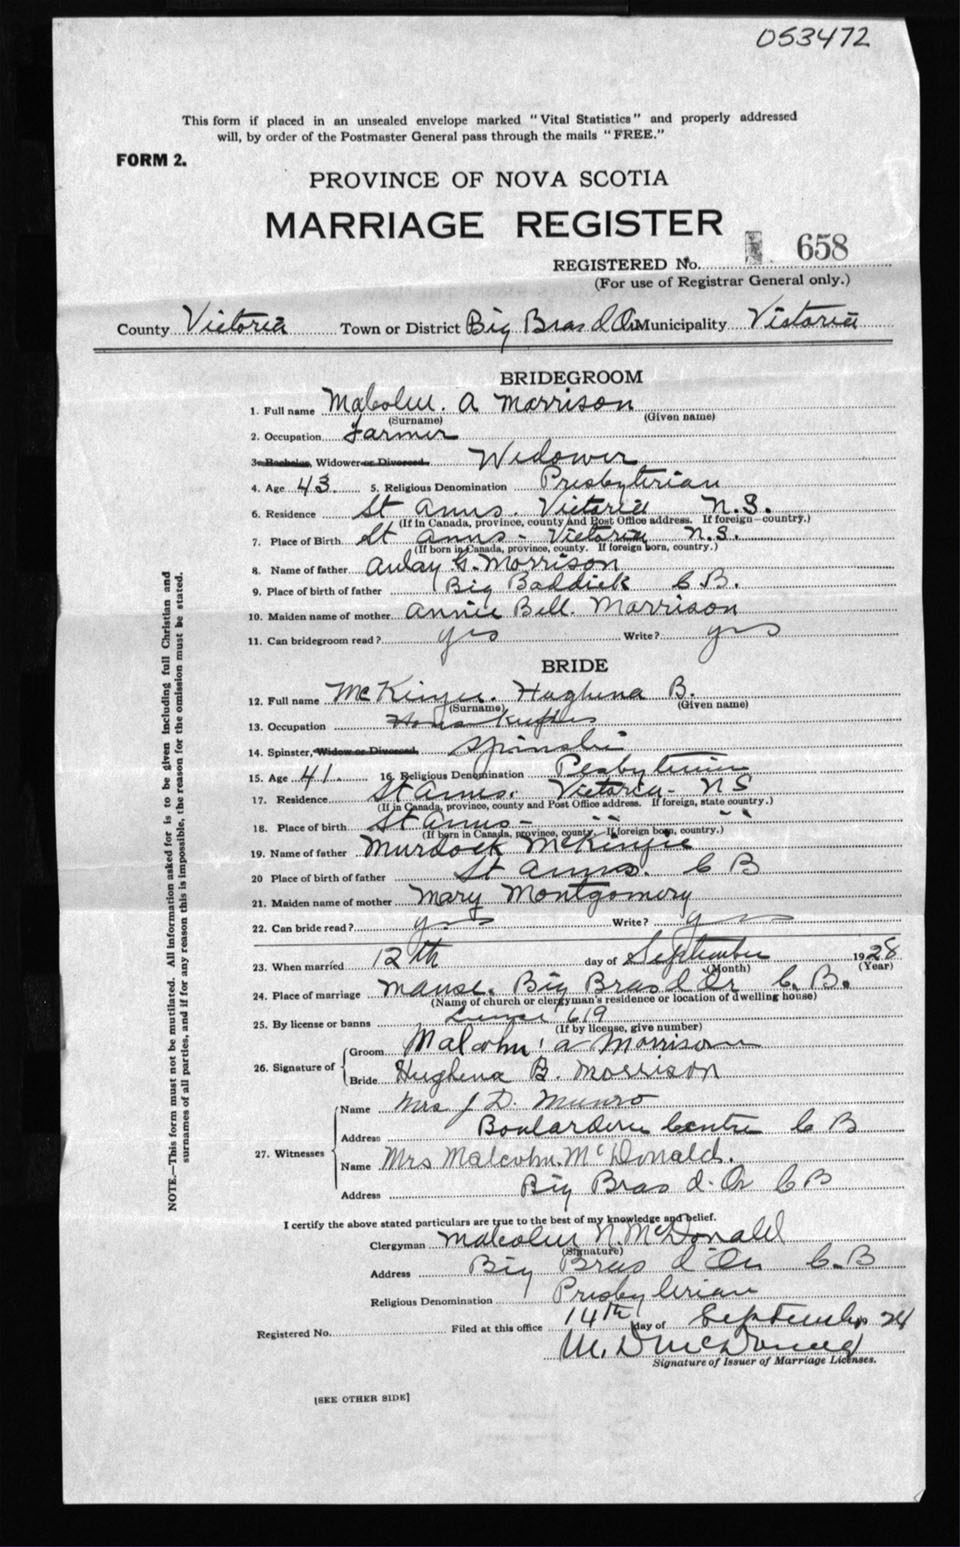 053472
This form if placed in an unsealed envelope marked "Vital Statistics" and properly addressed
will, by order of the Postmaster General pass through the mails "FREE."
FORM 2.
PROVINCE OF NOVA SCOTIA
MARRIAGE REGISTER
REGISTERED No. 658
(For use of Registrar General only.)
County Victoria Town or District Big Bras d Or Municipality Victoria
BRIDEGROOM
1. Full name Malcolm. A Morrison
(Surname) (Given name)
2. Occupation Farmer
3. Bachelor, Widower or Divorced. Widower
4. Age 43 5. Religious Denomination Presbyterian
6. Residence St Anns. Victoria N.S.
(If in Canada, province, county and Post Office address. If foreign—country.)
7. Place of Birth St Anns - Victoria N.S.
(If born in Canada, province, county. If foreign born, country.)
8. Name of father Aulay G. Morrison
9. Place of birth of father Big Baddick C.B.
10. Maiden name of mother Annie Bell. Morrison
11. Can bridegroom read? yes Write? yes
BRIDE
12. Full name Hughena B.
(Surname) (Given name)
13. Occupation
14. Spinster, Widow or Divorced.
15. Age 41. 16. Religious Denomination
17. Residence St Anns. Victoria - NS
(If in Canada, province, county and Post Office address. If foreign, state country.)
18. Place of birth St Anns - " " " "
(If born in Canada, province, county. If foreign born, country.)
19. Name of father Murdock McKinzie
20 Place of birth of father St Anns. C B
21. Maiden name of mother Mary Montgomery
22. Can bride read? yes Write? yes
23. When married 12th day of September 1928
(Month) (Year)
24. Place of marriage Manse. Big Bras d Or C. B.
(Name of church or clergyman's residence or location of dwelling house)
25. By license or banns 619
(If by license, give number)
26. Signature of
Groom Malcolm A Morrison
Bride Hughena B. Morrison
27. Witnesses
Name Mrs J D. Munro
Address Boularderie Centre C B
Name Mrs Malcolm. McDonald.
Address Big Bras d'Or C B
I certify the above stated particulars are true to the best of my knowledge and belief.
Clergyman Malcolm N. McDonald
(Signature)
Address Big Bras d'Or C.B
Religious Denomination Presbyterian
Registered No. Filed at this office 14th day of September
M. D McDonald
Signature of Issuer of Marriage Licenses.
[SEE OTHER SIDE]
NOTE.—This form must not be mutilated. All information asked for is to be given including full Christian and
surnames of all parties, and if for any reason this is impossible, the reason for the omission must be stated.